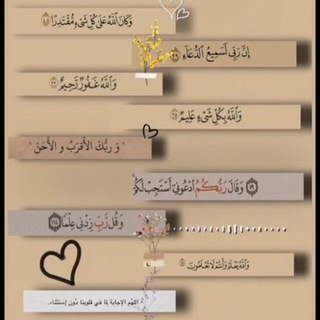 وَكَانَ ٱللَّهُ عَلَىٰ كُلِّ شَىْءٍ مُّقْتَدِرًا
إِنَّ رَبِّى لَسَمِيعُ ٱلدُّعَآءِ ٣٩
وَٱللَّهُ غَفُورٌ رَّحِيمٌ
وَٱللَّهُ بِكُلِّ شَىْءٍ عَلِيمٌ
" وَ رَبُّكَ الأَقرَبُ و الأَحَنّ "
وَقَالَ رَبُّكُمُ ٱدْعُونِىٓ أَسْتَجِبْ لَكُمْ
وَقُل رَّبِّ زِدْنِى عِلْمًا ١١٤
وَٱللَّهُ يَعْلَمُ وَأَنتُمْ لَا تَعْلَمُونَ
اللهُم الإجابة لِمَا في قلوبنا دُون إستثناء.